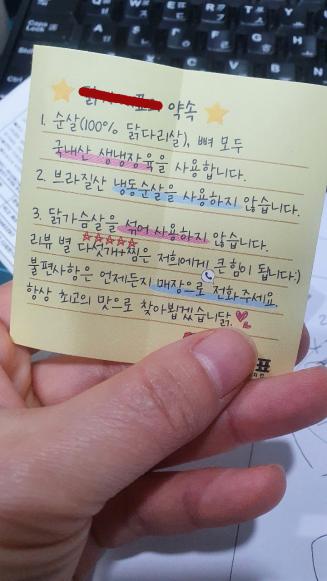 표 약속
1. 순살(100% 닭다리살), 뼈 모두
국내산 생냉장육을 사용합니다.
2. 브라질산 냉동순살을 사용하지 않습니다.
3. 닭가슴살을 섞어 사용하지 않습니다.
리뷰 별 다섯개+찜은 저희에게 큰 힘이 됩니다:)
불편사항은 언제든지 매장으로 전화주세요
항상 최고의 맛으로 찾아뵙겠습니닭.
표
Caps Lock